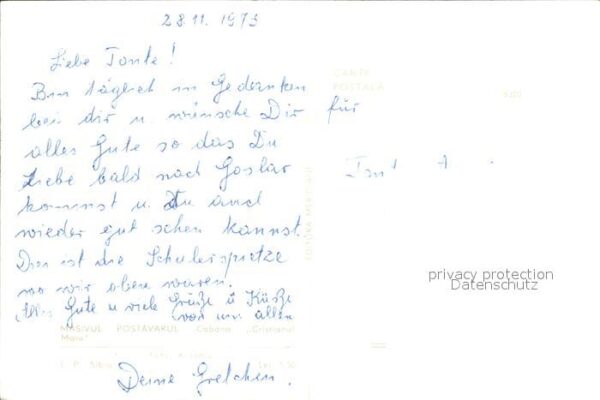 28.11.1973
Liebe Tante!
Bin täglich in Gedanken
bei dir u. wünsche Dir für
alles Gute so das Du
Liebe bald nach Goslar
kommst u. Du auch
wieder gut sehen kannst.
Dies ist die Schulerspietze
wo wir oben waren.
Alles Gute u viele Grüße u Küsse
von uns allen
Deine Gretchen.
CARTE
POSTALA
MASIVUL POSTĂVARUL Cabana „Cristianul
Mare"
privacy protection
Datenschutz